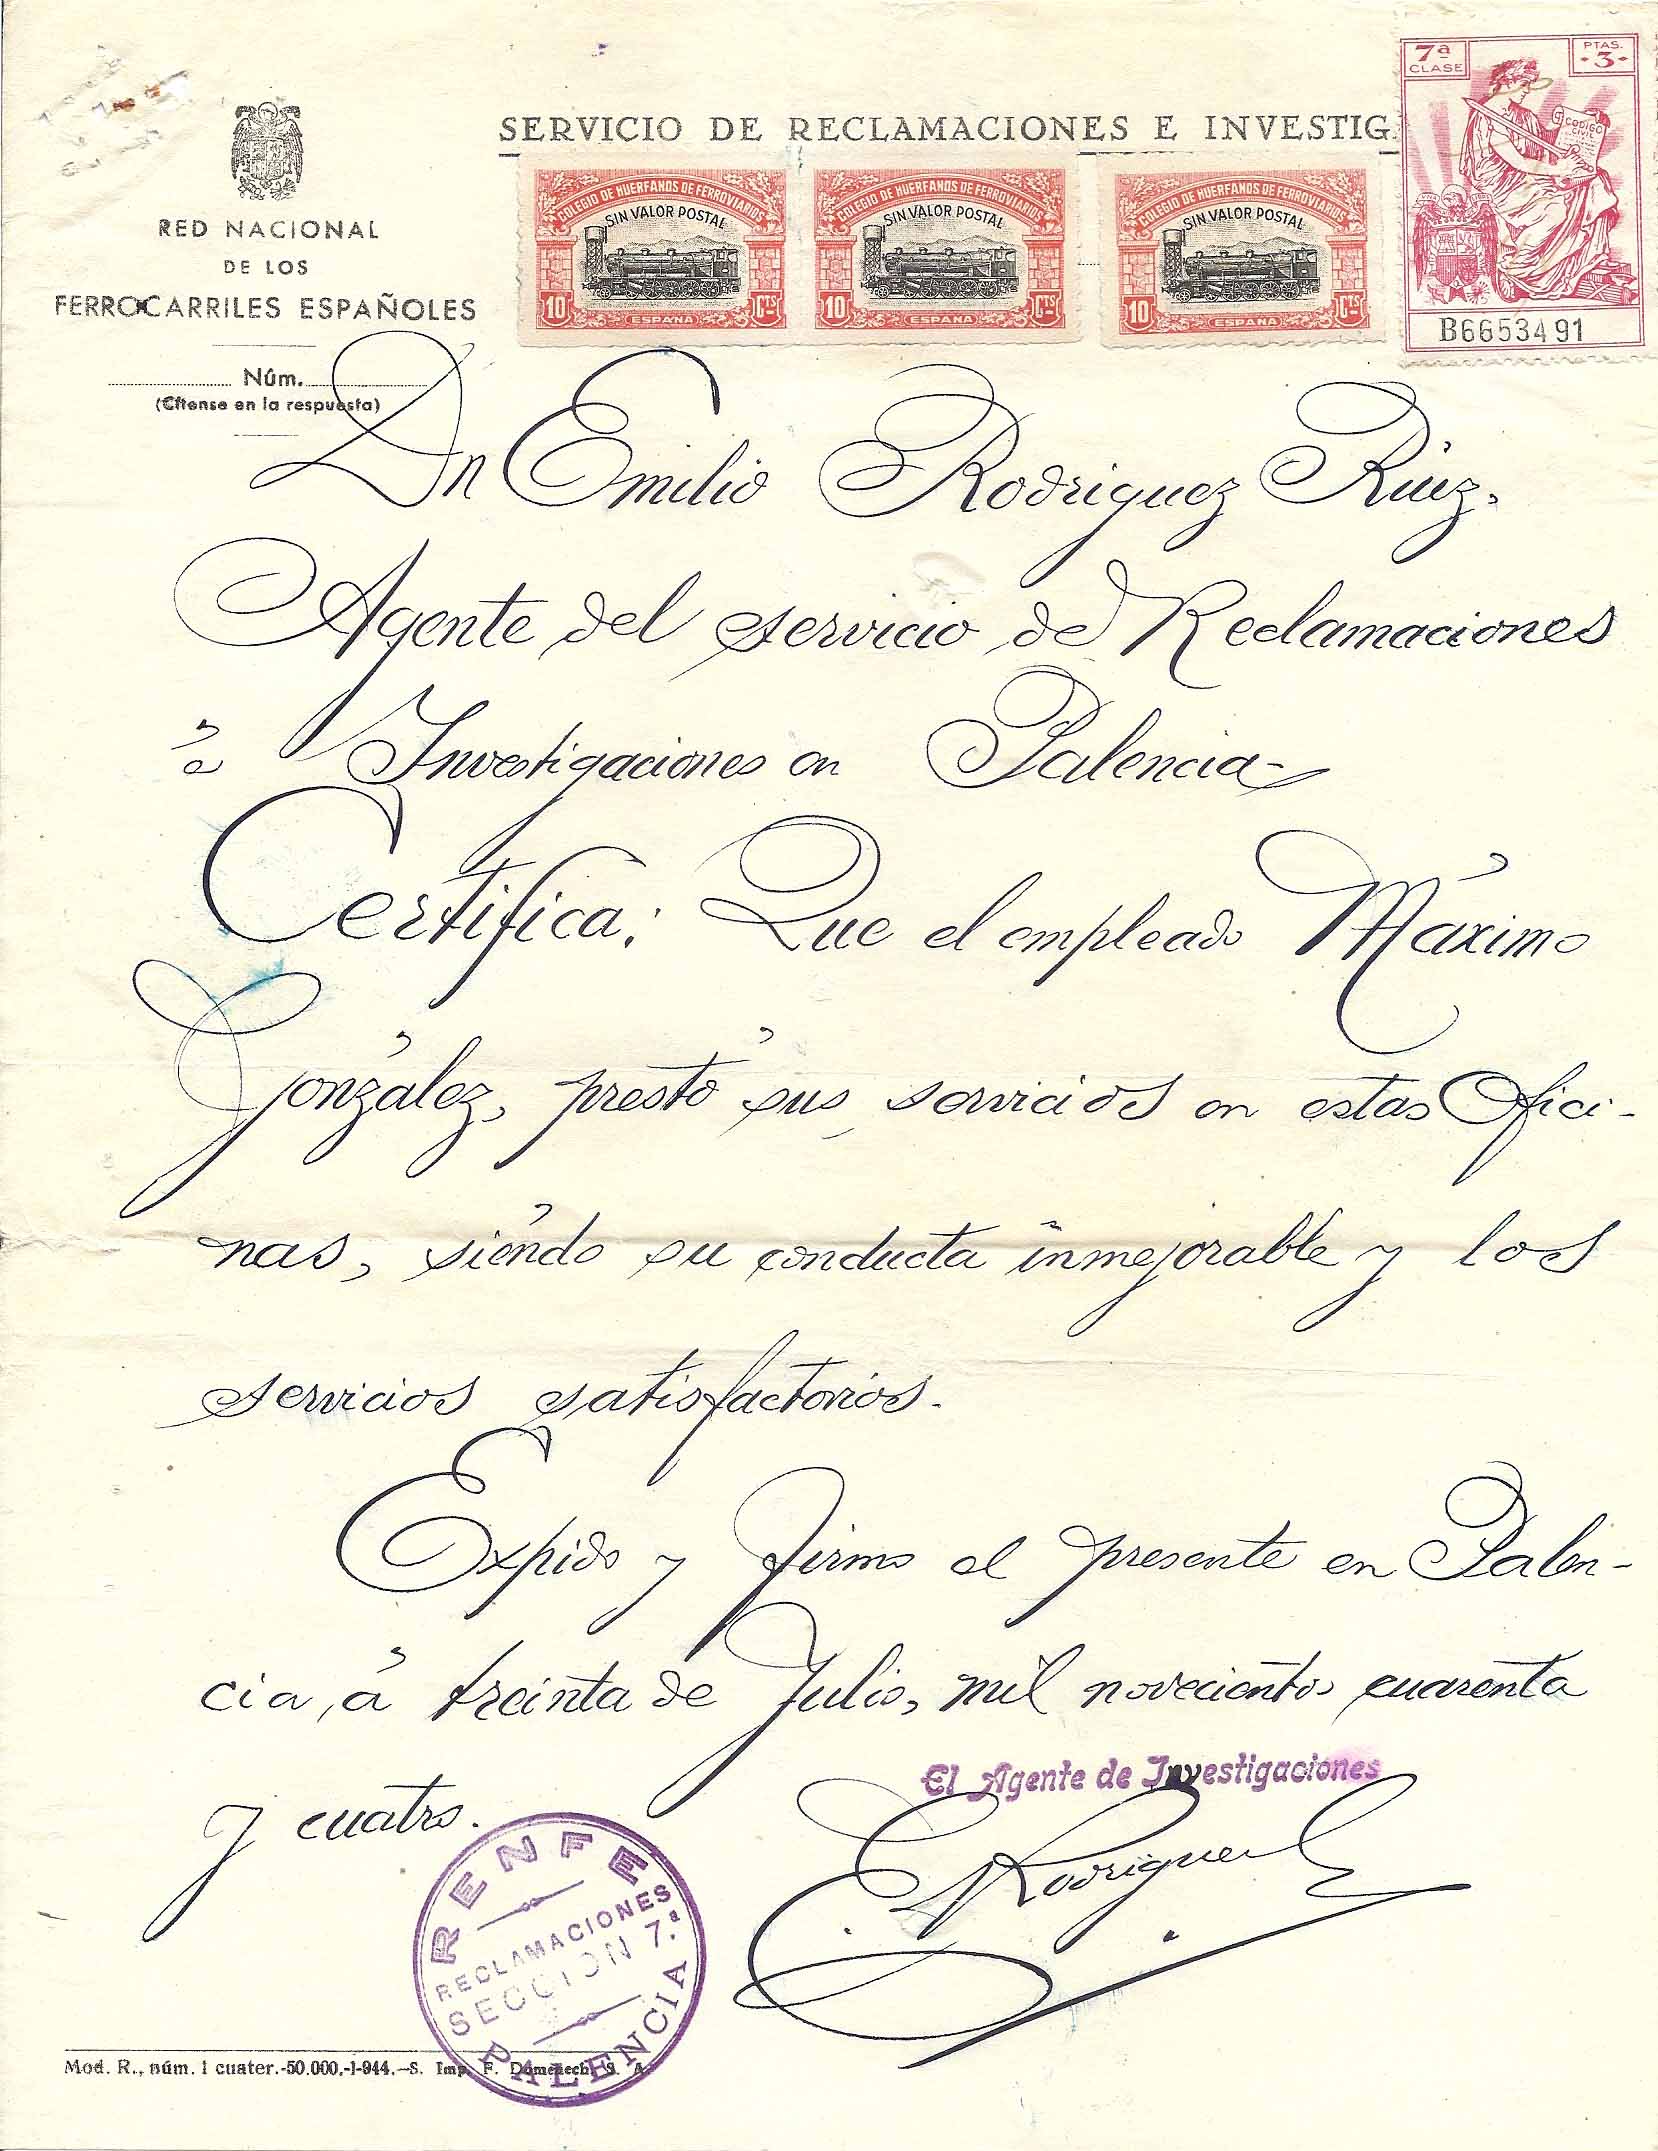 SERVICIO DE RECLAMACIONES E INVESTIG
7ª CLASE
PTAS. 3
CODIGO CIVIL
B6653491
COLEGIO DE HUERFANOS DE FERROVIARIOS
SIN VALOR POSTAL
10 CTS
ESPAÑA
COLEGIO DE HUERFANOS DE FERROVIARIOS
SIN VALOR POSTAL
10 CTS
ESPAÑA
COLEGIO DE HUERFANOS DE FERROVIARIOS
SIN VALOR POSTAL
10 CTS
ESPAÑA
RED NACIONAL
DE LOS
FERROCARRILES ESPAÑOLES
Núm.
(Cítense en la respuesta)
Dn Emilio Rodriguez Rúiz,
Agente del servicio de Reclamaciones
é Investigaciones en Palencia
Certifica: Que el empleado Máximo
González, prestó sus servicios en estas Ofici-
nas, siéndo su conducta inmejorable y los
servicios satisfactorios.
Expido y firmo el presente en Palen-
cia, á treinta de Julio, mil novecientos cuarenta
y cuatro.
El Agente de Investigaciones
E Rodriguez
RENFE
RECLAMACIONES
SECCION 7.ª
PALENCIA
Mod. R., núm. 1 cuater.-50.000.-1-944.-S. Imp. F. Domenech, S. A.